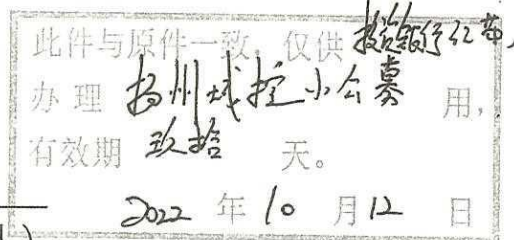 此件与原件一致，仅供投资银行红
办理 扬州城控小公募 用，
有效期 玖拾 天。
2022 年 10 月 12 日